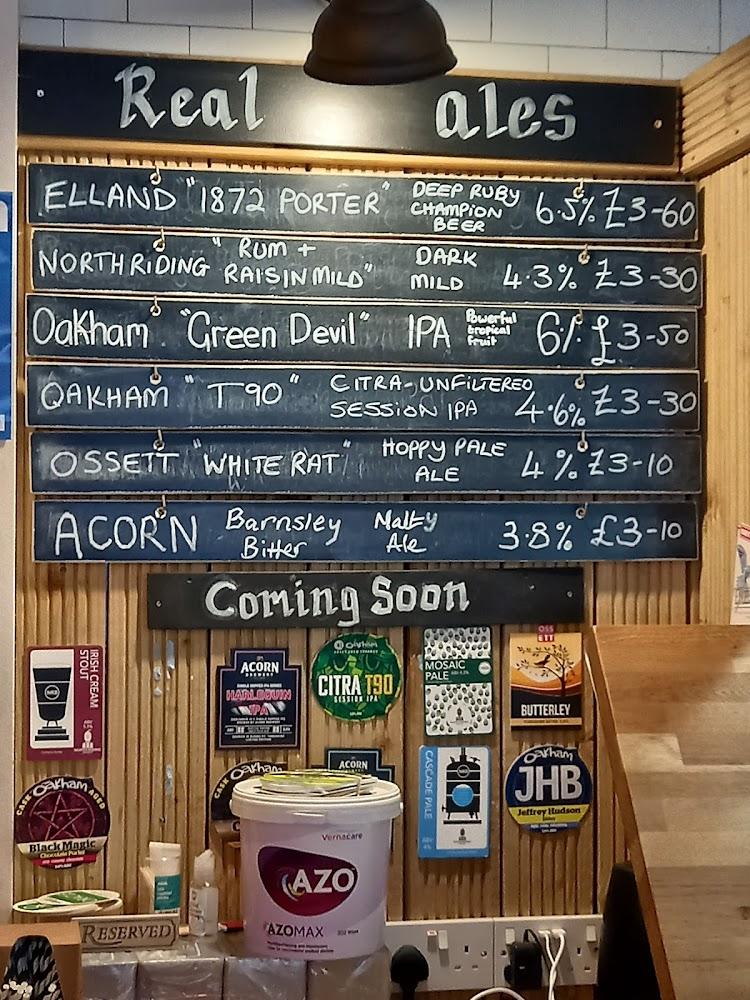 Real ales
ELLAND "1872 PORTER" DEEP RUBY CHAMPION BEER 6.5% £3-60
NORTH RIDING "RUM + RAISIN MILD" DARK MILD 4.3% £3-30
Oakham "Green Devil" IPA Powerful tropical fruit 6% £3-50
OAKHAM "T90" CITRA-UNFILTERED SESSION IPA 4.6% £3-30
OSSETT "WHITE RAT" HOPPY PALE ALE 4% £3-10
ACORN Barnsley Bitter Malty Ale 3.8% £3-10
Coming Soon
IRISH CREAM STOUT
ACORN
HARLEQUIN IPA
Oakham
CITRA T90
SESSION IPA
MOSAIC PALE
OSSETT
BUTTERLEY
Oakham
CASK AGED
Black Magic
Chocolate Porter
Oakham
ACORN
CASCADE PALE
Oakham
JHB
Jeffrey Hudson
Vernacare
AZO
AZOMAX
RESERVED